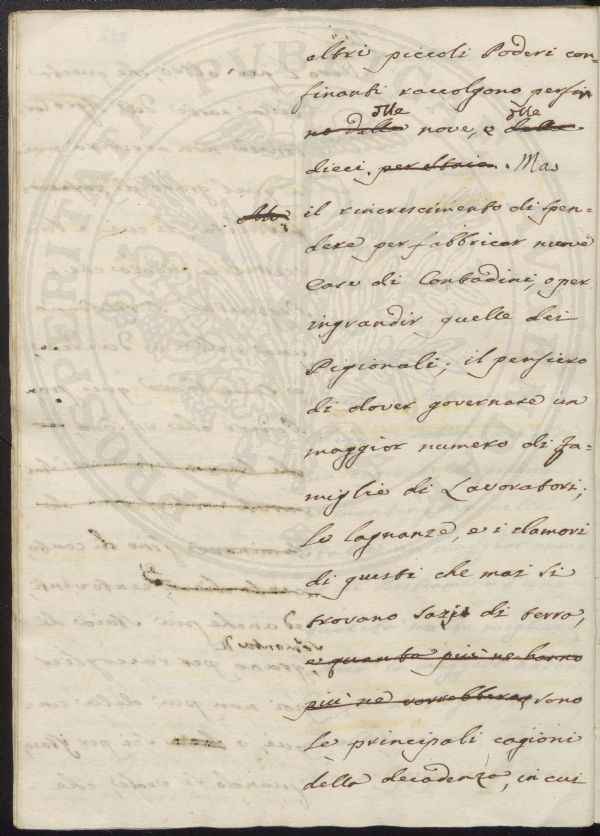 altri piccoli Poderi con=
finanti raccolgono persin
alle alle
no dalla nove, e dalle
dieci per staia. Ma
Ma
il rincrescimento di spen=
dere per fabbricar nuove
Case di Contadini, o per
ingrandir quelle dei
Pigionali; il pensiero
di dover governare un
maggior numero di fa=
miglie di Lavoratori;
le lagnanze, e i clamori
di questi che mai si
trovano sazj di terra,
e quanta più ne hanno
più ne vorrebbero, sono
le principali cagioni
della decadenza, in cui
PROSPERITATI PUBLICAE